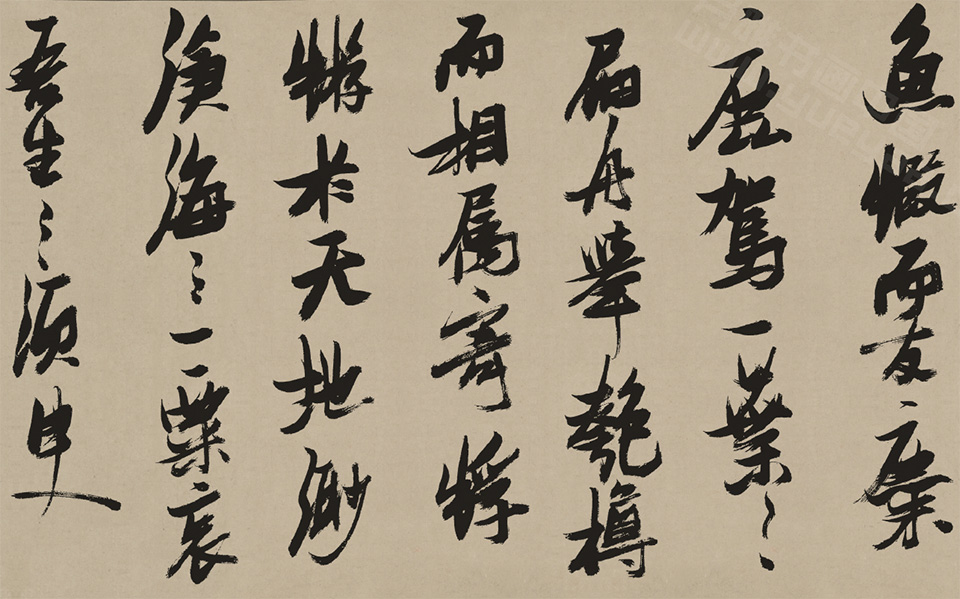 魚鰕而友麋
鹿駕一葉之
扁舟舉匏樽
而相属寄蜉
蝣於天地渺
滄海之一粟哀
吾生之須臾